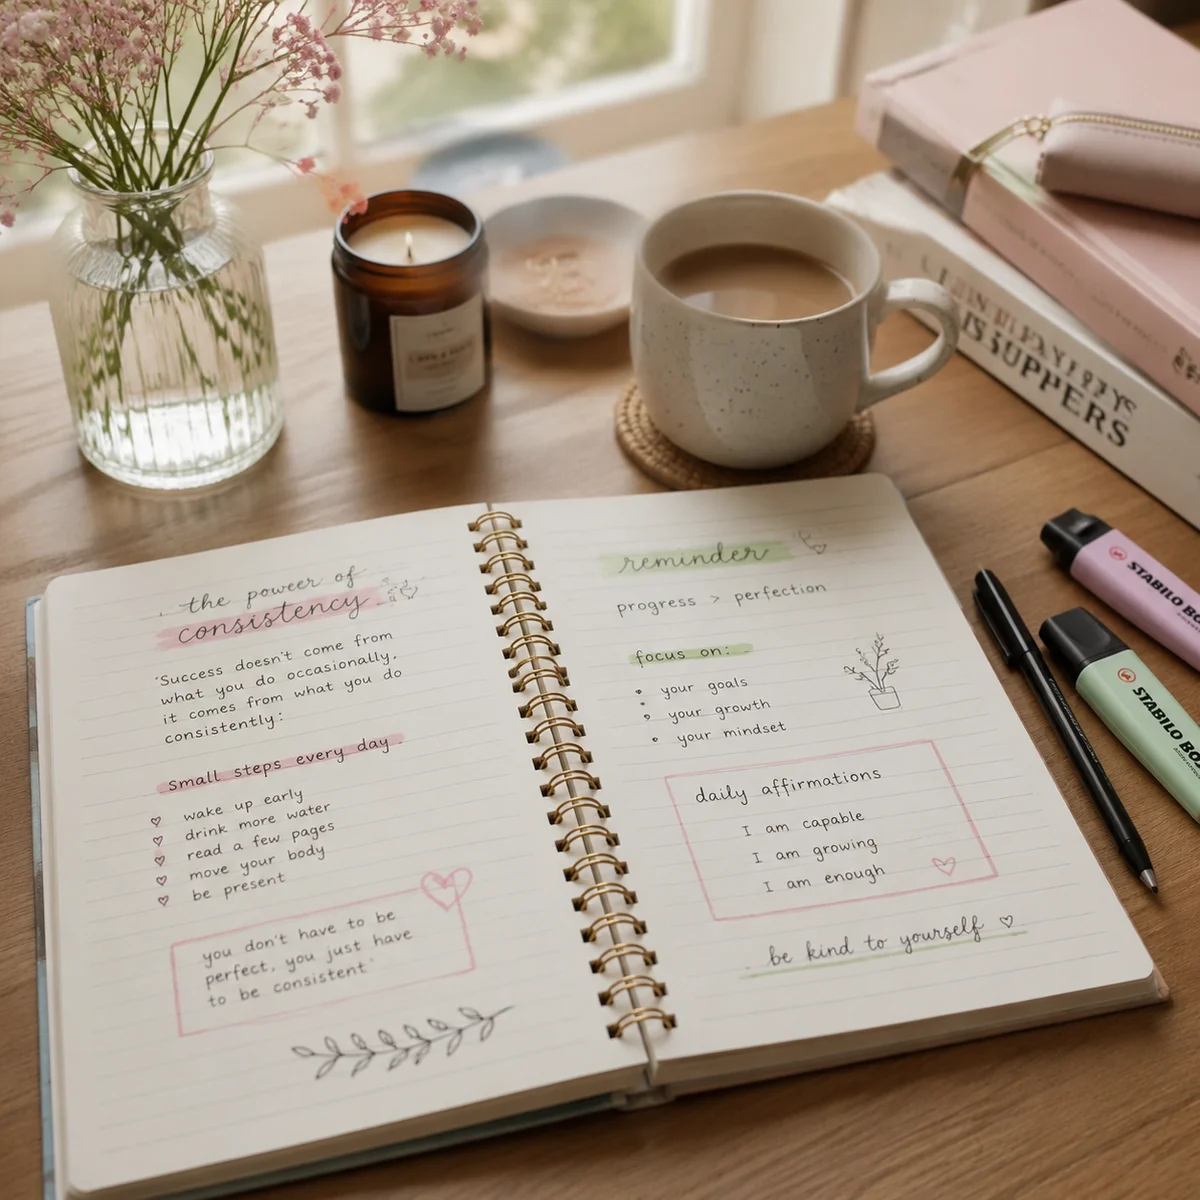 the poweer of
consistency
"Success doesn't come from
what you do occasionally,
it comes from what you do
consistently:
small steps every day.
wake up early
drink more water
read a few pages
move your body
be present
you don't have to be
perfect, you just have
to be consistent"
reminder
progress > perfection
focus on:
your goals
your growth
your mindset
daily affirmations
I am capable
I am growing
I am enough
be kind to yourself
STABILO BO
STABILO BO